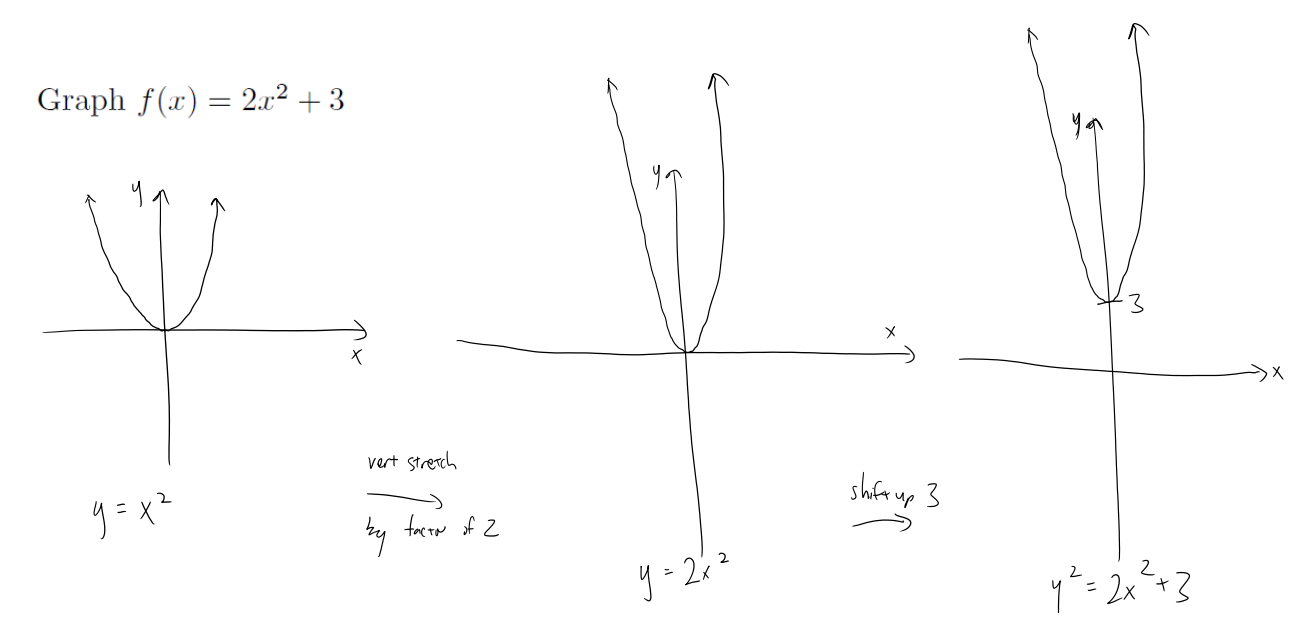 Graph f(x) = 2x² + 3
y
x
y = x²
vert stretch
by factor of 2
y
x
y = 2x²
shift up 3
y
3
x
y² = 2x² + 3